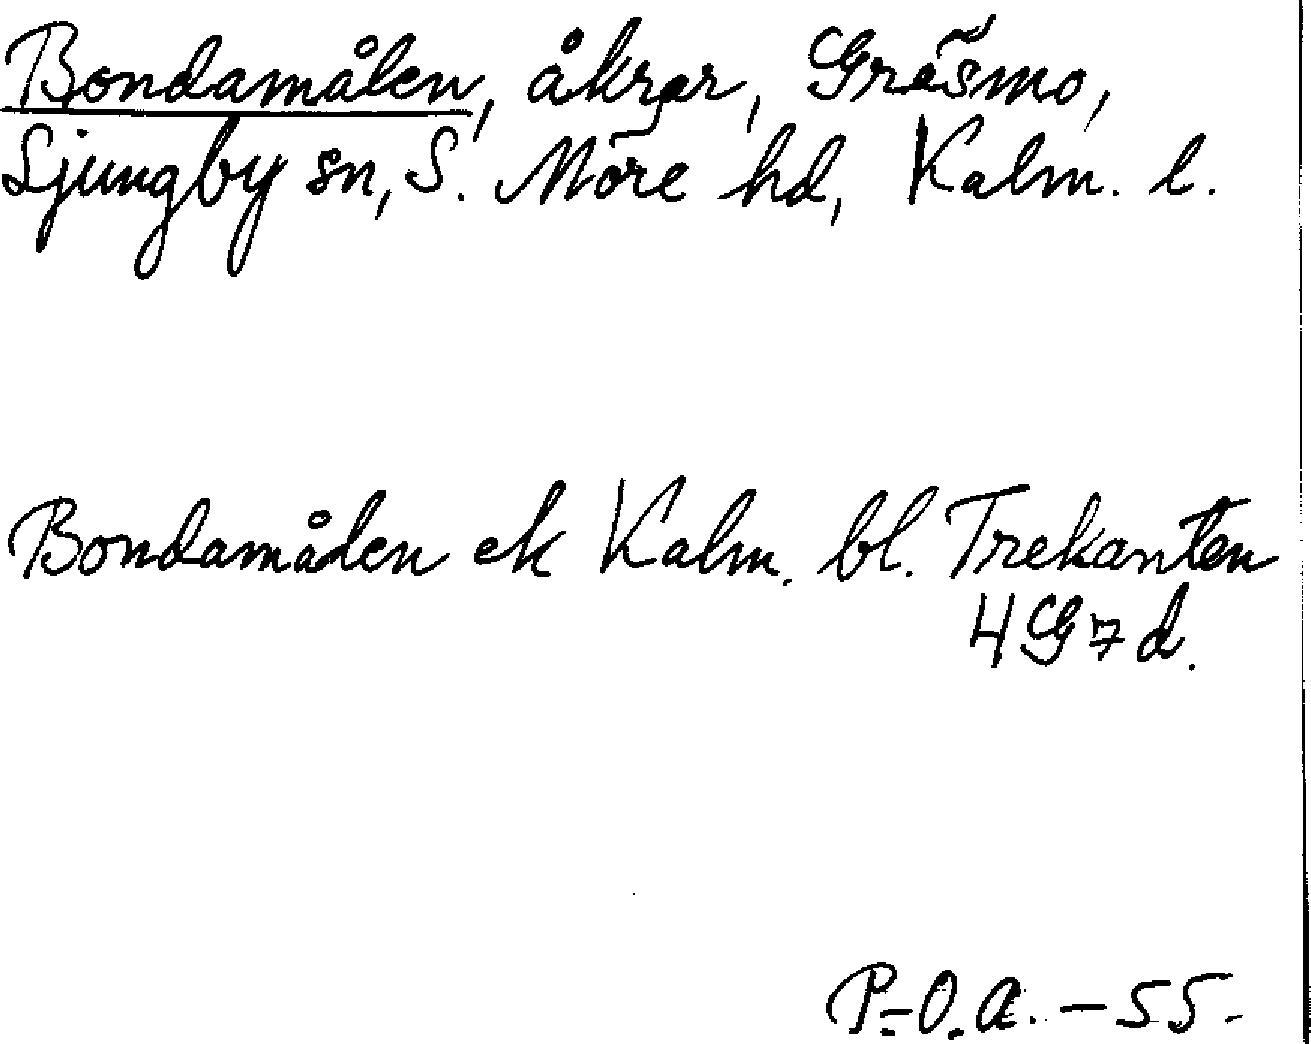 Bondamålen, åkrar, Gräsmo,
Ljungby sn, S. Möre hd, Kalm. l.
Bondamålen ek Kalm. bl. Trekanten
4G7d.
P.-O.A. - 55.-